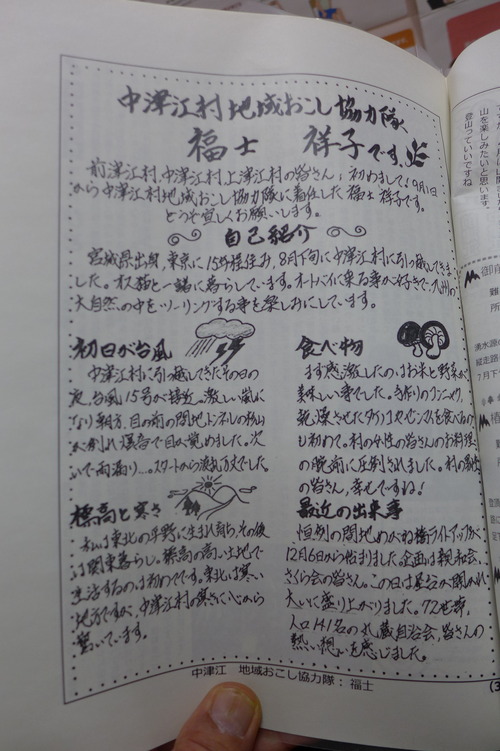 中津江村地域おこし協力隊、
福士　祥子です。
前津江村、中津江村、上津江村の皆さん；初めまして！9月1日
から中津江村地域おこし協力隊に着任した 福士 祥子です。
どうぞ宜しくお願いします。
自己紹介
宮城県出身、東京に15年程住み、8月下旬に中津江村に引っ越してきま
した。オス猫と一緒に暮らしています。オートバイに乗る事が好きで、九州の
大自然の中をツーリングする事を楽しみにしています。
初日が台風
中津江村に引っ越してきたその日の
夜、台風15号が接近…激しい嵐に
なり朝方、目の前の間地トンネルの杉山
が倒れ爆音で目が覚めました。次
いで雨漏り…。スタートから波乱万丈でした。
標高と寒さ
私は東北の平野に生まれ育ち、その後
は関東暮らし。標高の高い土地で
生活するのは初めてです。東北は寒い
地方ですが、中津江村の寒さに心から
驚いています。
食べ物
まず感激したのはお米と野菜が
美味しい事でした。手作りのコンニャク、
乾燥させたタケノコやゼンマイを食べるの
も初めて。村の女性の皆さんのお料理
の腕前に圧倒されました。村の男性
の皆さん、幸せですね！
最近の出来事
恒例の間地めがね橋ライトアップが
12月6日から始まりました。企画は親和会、
さくら会の皆さん。この日は宴会が開かれ
大いに盛り上がりました。72世帯、
人口141名の丸蔵自治会、皆さんの
熱い想いを感じました。
中津江　地域おこし協力隊：福士
(3
山を楽しみたいと思います。
登山っていいですね